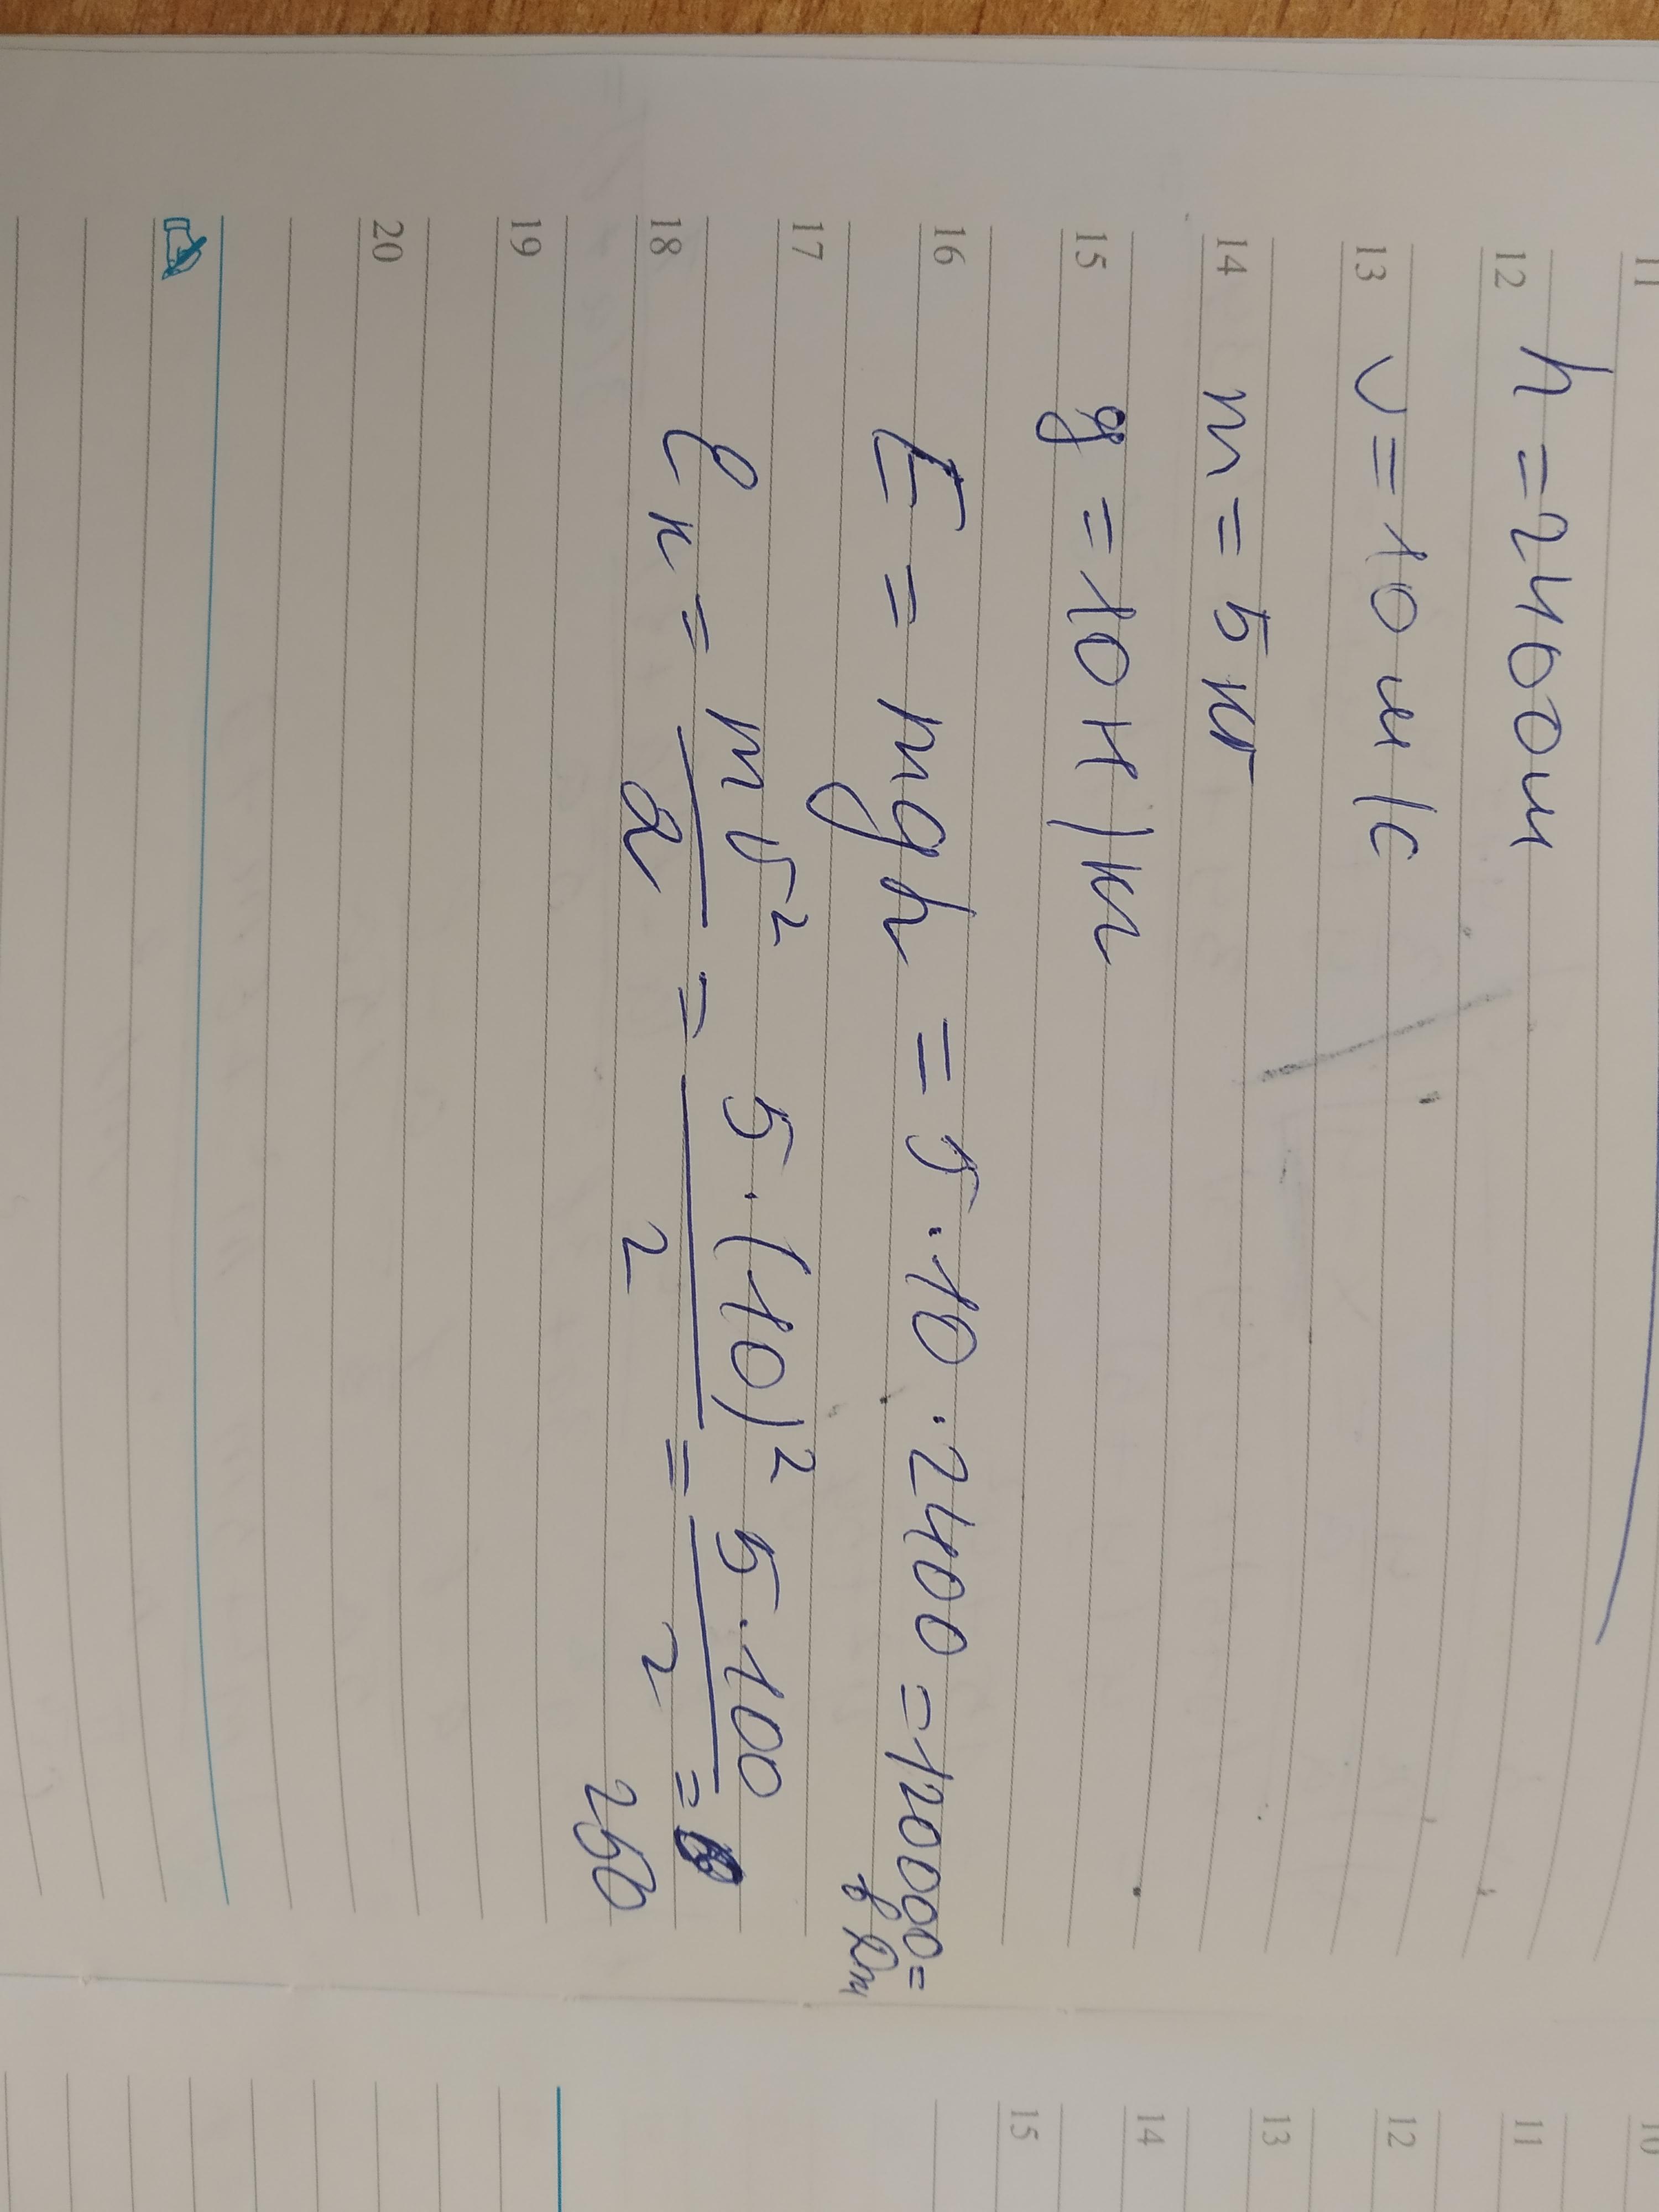 11
12 h = 2400 м
13 v = 10 м/с
14 m = 5 кг
15 g = 10 Н/кг
16 E = mgh = 5 · 10 · 2400 = 120000 =
17
18 Eк = mv²/2 = 5·(10)²/2 = 5·100/2 =
250
19
20
10
11
12
13
14
15